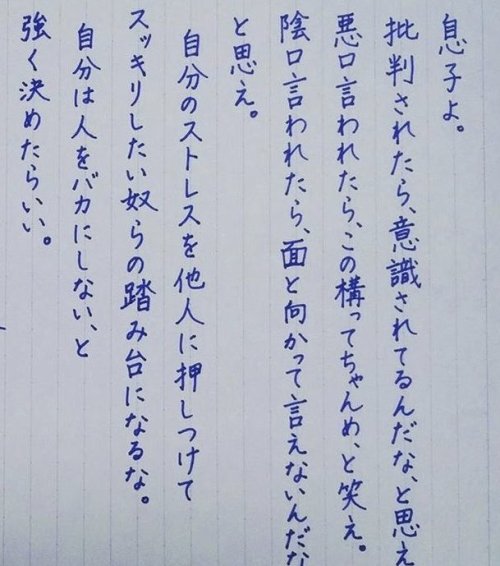 息子よ。
批判されたら、意識されてるんだな、と思え
悪口言われたら、この構ってちゃんめ、と笑え。
陰口言われたら、面と向かって言えないんだな
と思え。
自分のストレスを他人に押しつけて
スッキリしたい奴らの踏み台になるな。
自分は人をバカにしない、と
強く決めたらいい。